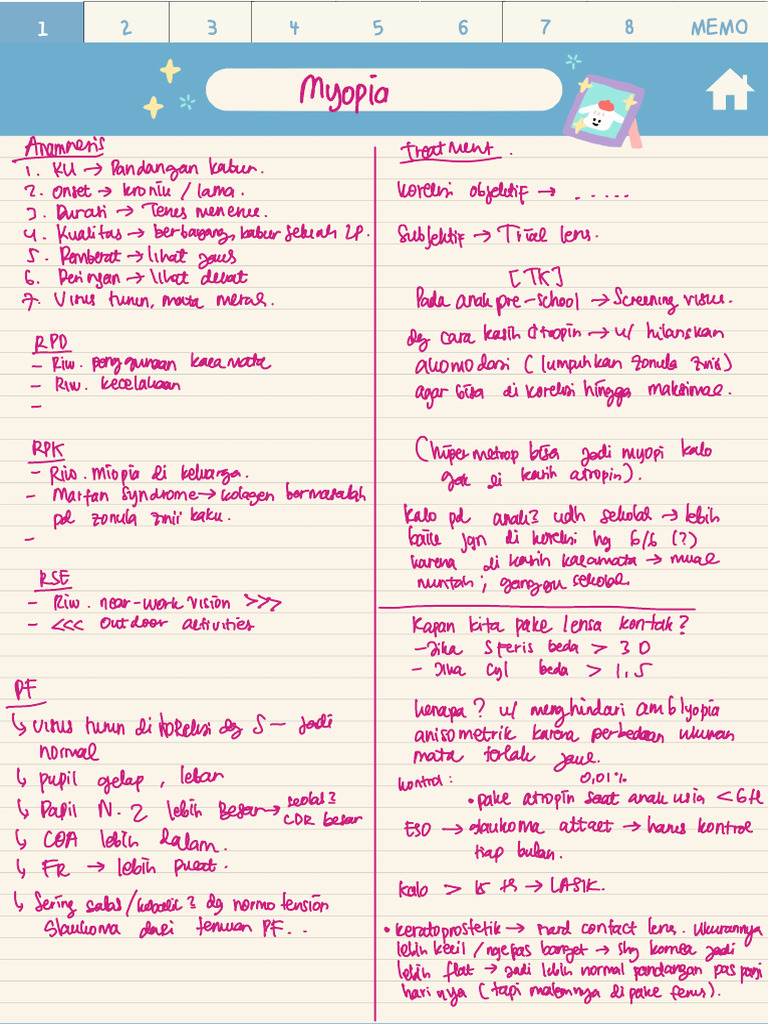 1 2 3 4 5 6 7 8 MEMO
Myopia
Anamnesis
1. KU → Pandangan kabur.
2. Onset → kronik / lama.
3. Durasi → Terus menerus.
4. Kualitas → berbayang, kabur sebuah LP.
5. Pemberat → lihat jauh
6. Peringan → lihat dekat
7. Visus turun, mata merah.
RPD
- Riw. penggunaan kacamata
- Riw. kecelakaan
-
RPK
- Riw. miopia di keluarga.
- Marfan Syndrome → kolagen bermasalah
pd zonula zinii kaku.
-
RSE
- Riw. near-work vision >>>
- <<< outdoor activities
PF
↳ visus turun di koreksi dg S - jadi
normal
↳ pupil gelap, lebar
↳ Papil N. 2 lebih besar → seolah2
CDR besar
↳ COA lebih dalam.
↳ FR → lebih pucat.
↳ Sering salah / kebalik2 dg normo tension
glaukoma dari temuan PF...
Treatment.
Koreksi objektif → .....
Subjektif → Trial lens.
[TK]
Pada anak pre-school → Screening visus.
dg cara kasih atropin → u/ hilangkan
akomodasi (lumpuhkan zonula zinii)
agar bisa di koreksi hingga maksimal.
(hipermetrop bisa jadi myopi kalo
gak di kasih atropin).
Kalo pd anak2 udh sekolah → lebih
baik jgn di koreksi hg 6/6 (?)
karena di kasih kacamata → mual
muntah; ganggu sekolah
Kapan kita pake lensa kontak?
- Jika Sferis beda > 3 D
- Jika Cyl beda > 1,5
kenapa? u/ menghindari amblyopia
anisometrik karena perbedaan ukuran
mata terlalu jauh.
kontrol: 0,01%
• pake atropin saat anak usia < 6 th
ESO → glaukoma attact → harus kontrol
tiap bulan.
Kalo > 18 th → LASIK.
• keratoprostetik → Hard contact lens. Ukurannya
lebih kecil / ngepas banget → shg kornea jadi
lebih flat → jadi lebih normal pandangan pas pagi
hari nya (tapi malemnya di pake terus).